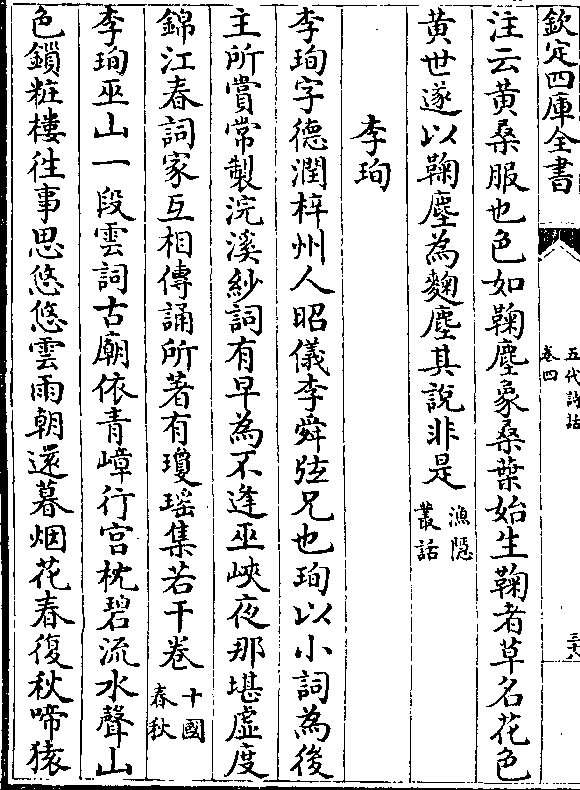 欽定四庫全書
五代詩話
卷四
三十八
注云黃桑服也色如鞠塵象桑葉始生鞠者草名花色
黃世遂以鞠塵為麴塵其說非是漁隱叢話
李珣
李珣字德潤梓州人昭儀李舜弦兄也珣以小詞為後
主所賞常製浣溪紗詞有早為不逢巫峽夜那堪虛度
錦江春詞家互相傳誦所著有瓊瑤集若干卷十國春秋
李珣巫山一段雲詞古廟依青嶂行宫枕碧流水聲山
色鎖粧樓往事思悠悠雲雨朝還暮烟花春復秋啼猿